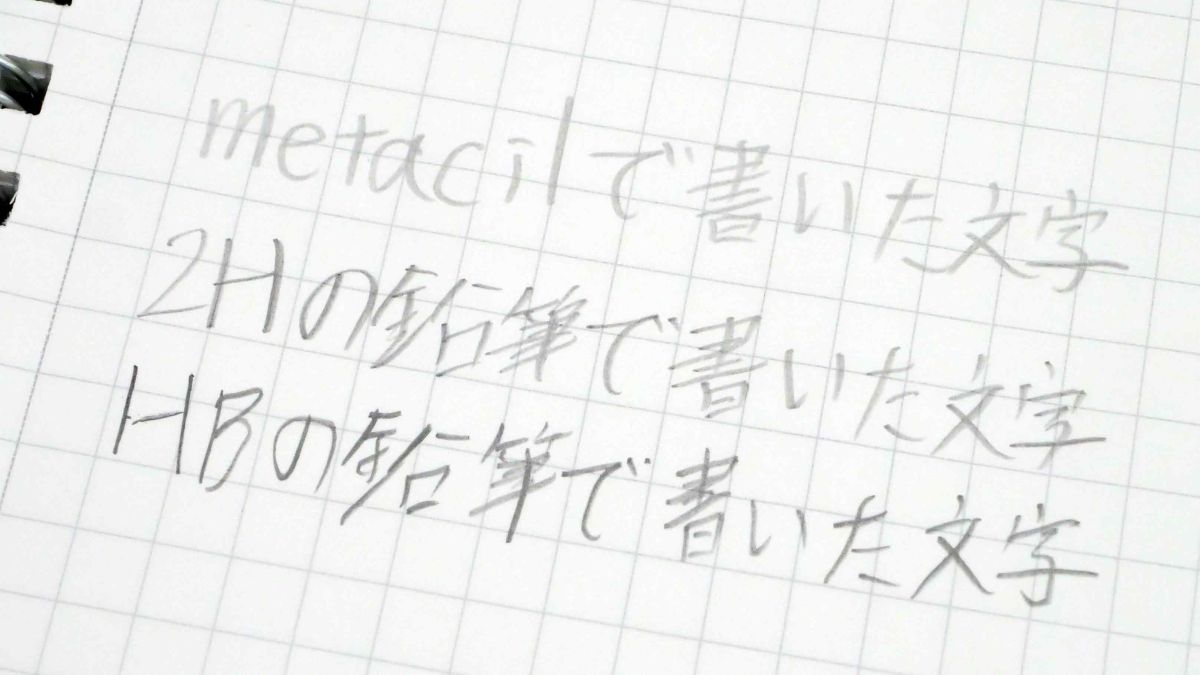 metacilで書いた文字
2Hの鉛筆で書いた文字
HBの鉛筆で書いた文字